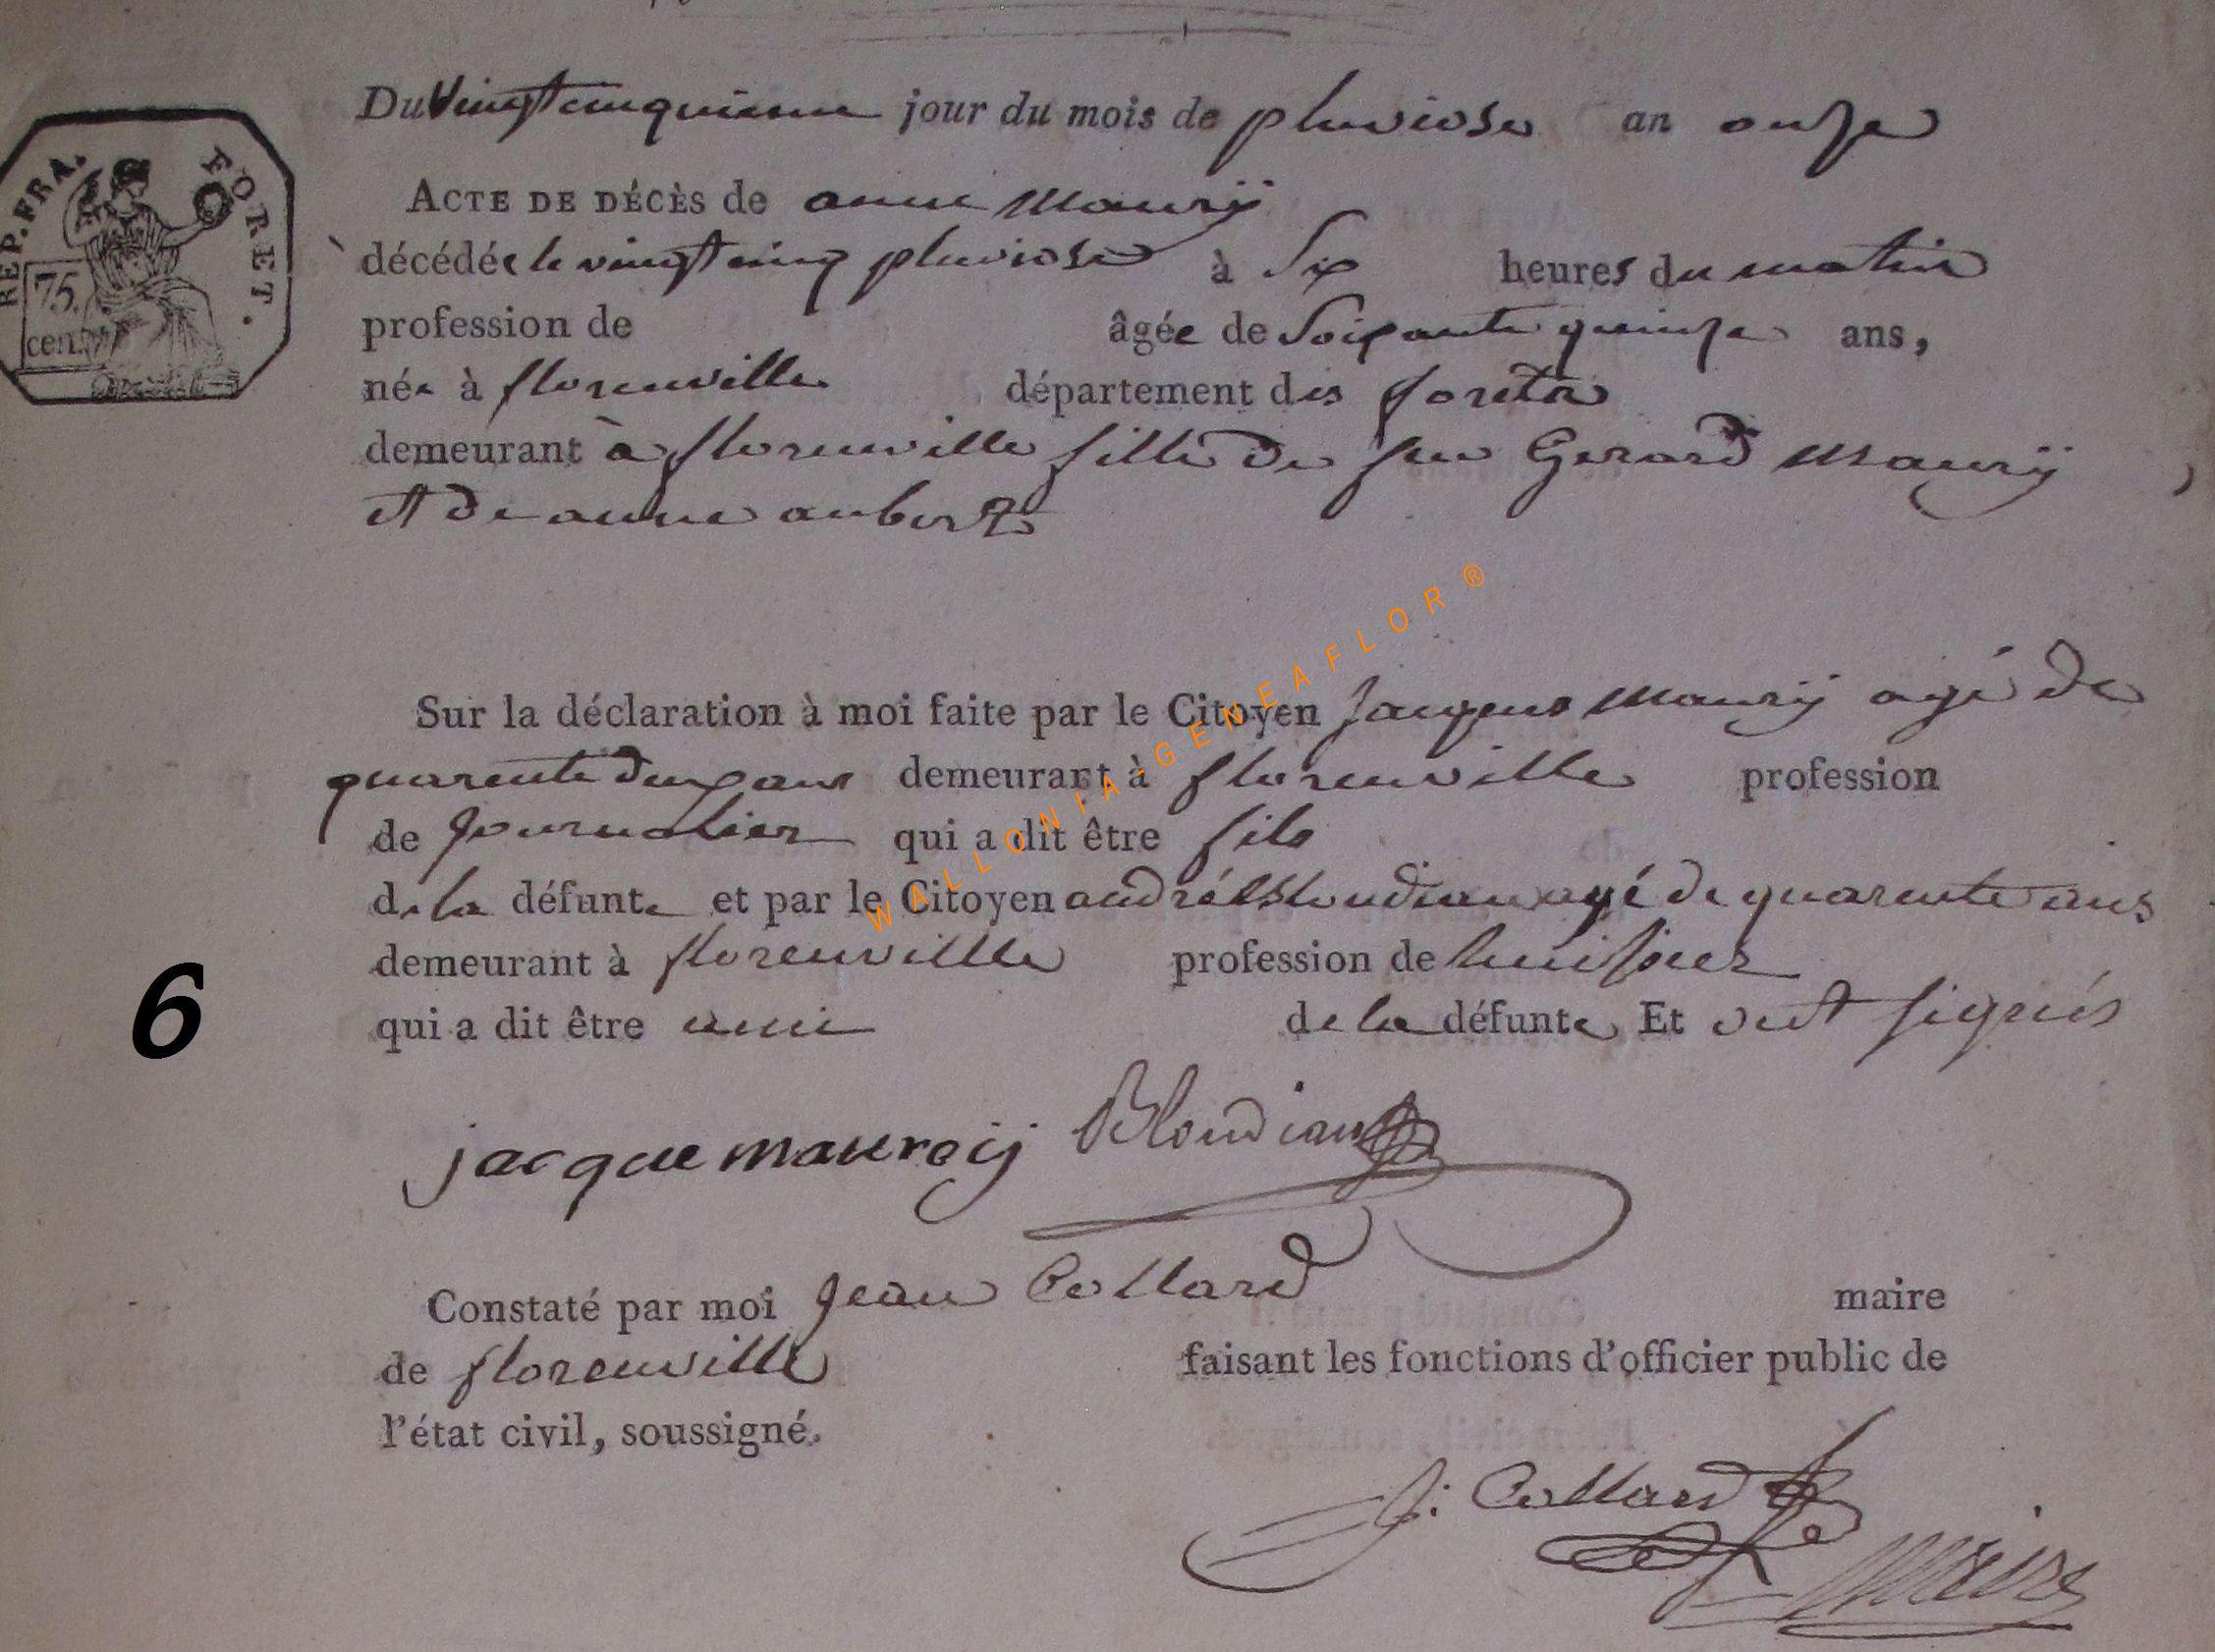 Du Vingt cinquieme jour du mois de pluviose an onze
REP. FRA. FORET.
75. cen.
ACTE DE DÉCÈS de anne Maurÿ
décédée le vingt cinq pluviose à Six heures du matin
profession de âgée de Soixante quinze ans,
née à florenville département des forets
demeurant à florenville fille de feu Gerard Maurÿ
et de anne aubert
Sur la déclaration à moi faite par le Citoyen Jacques Maurÿ agé de
quarente deux ans demeurant à florenville profession
de Journalier qui a dit être fils
de la défunte et par le Citoyen andré Blondiau agé de quarente ans
demeurant à florenville profession de huissier
6
qui a dit être ami de la défunte Et ont signés
jacque maurij Blondiau
Constaté par moi Jean Collard maire
de florenville faisant les fonctions d'officier public de
l'état civil, soussigné.
J: Collard
Maire
WALLONIA-GENEAFLOR®